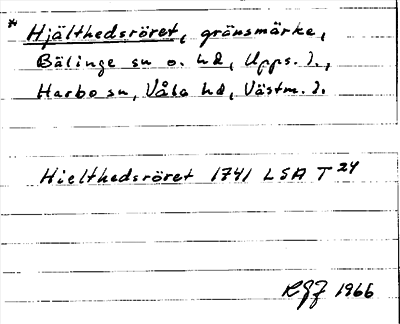 * Hjälthedsröret, gränsmärke,
Bälinge sn o. hd, Upps. l.,
Harbo sn, Våla hd, Västm. l.
Hielthedsröret 1741 LSA T 24
1966